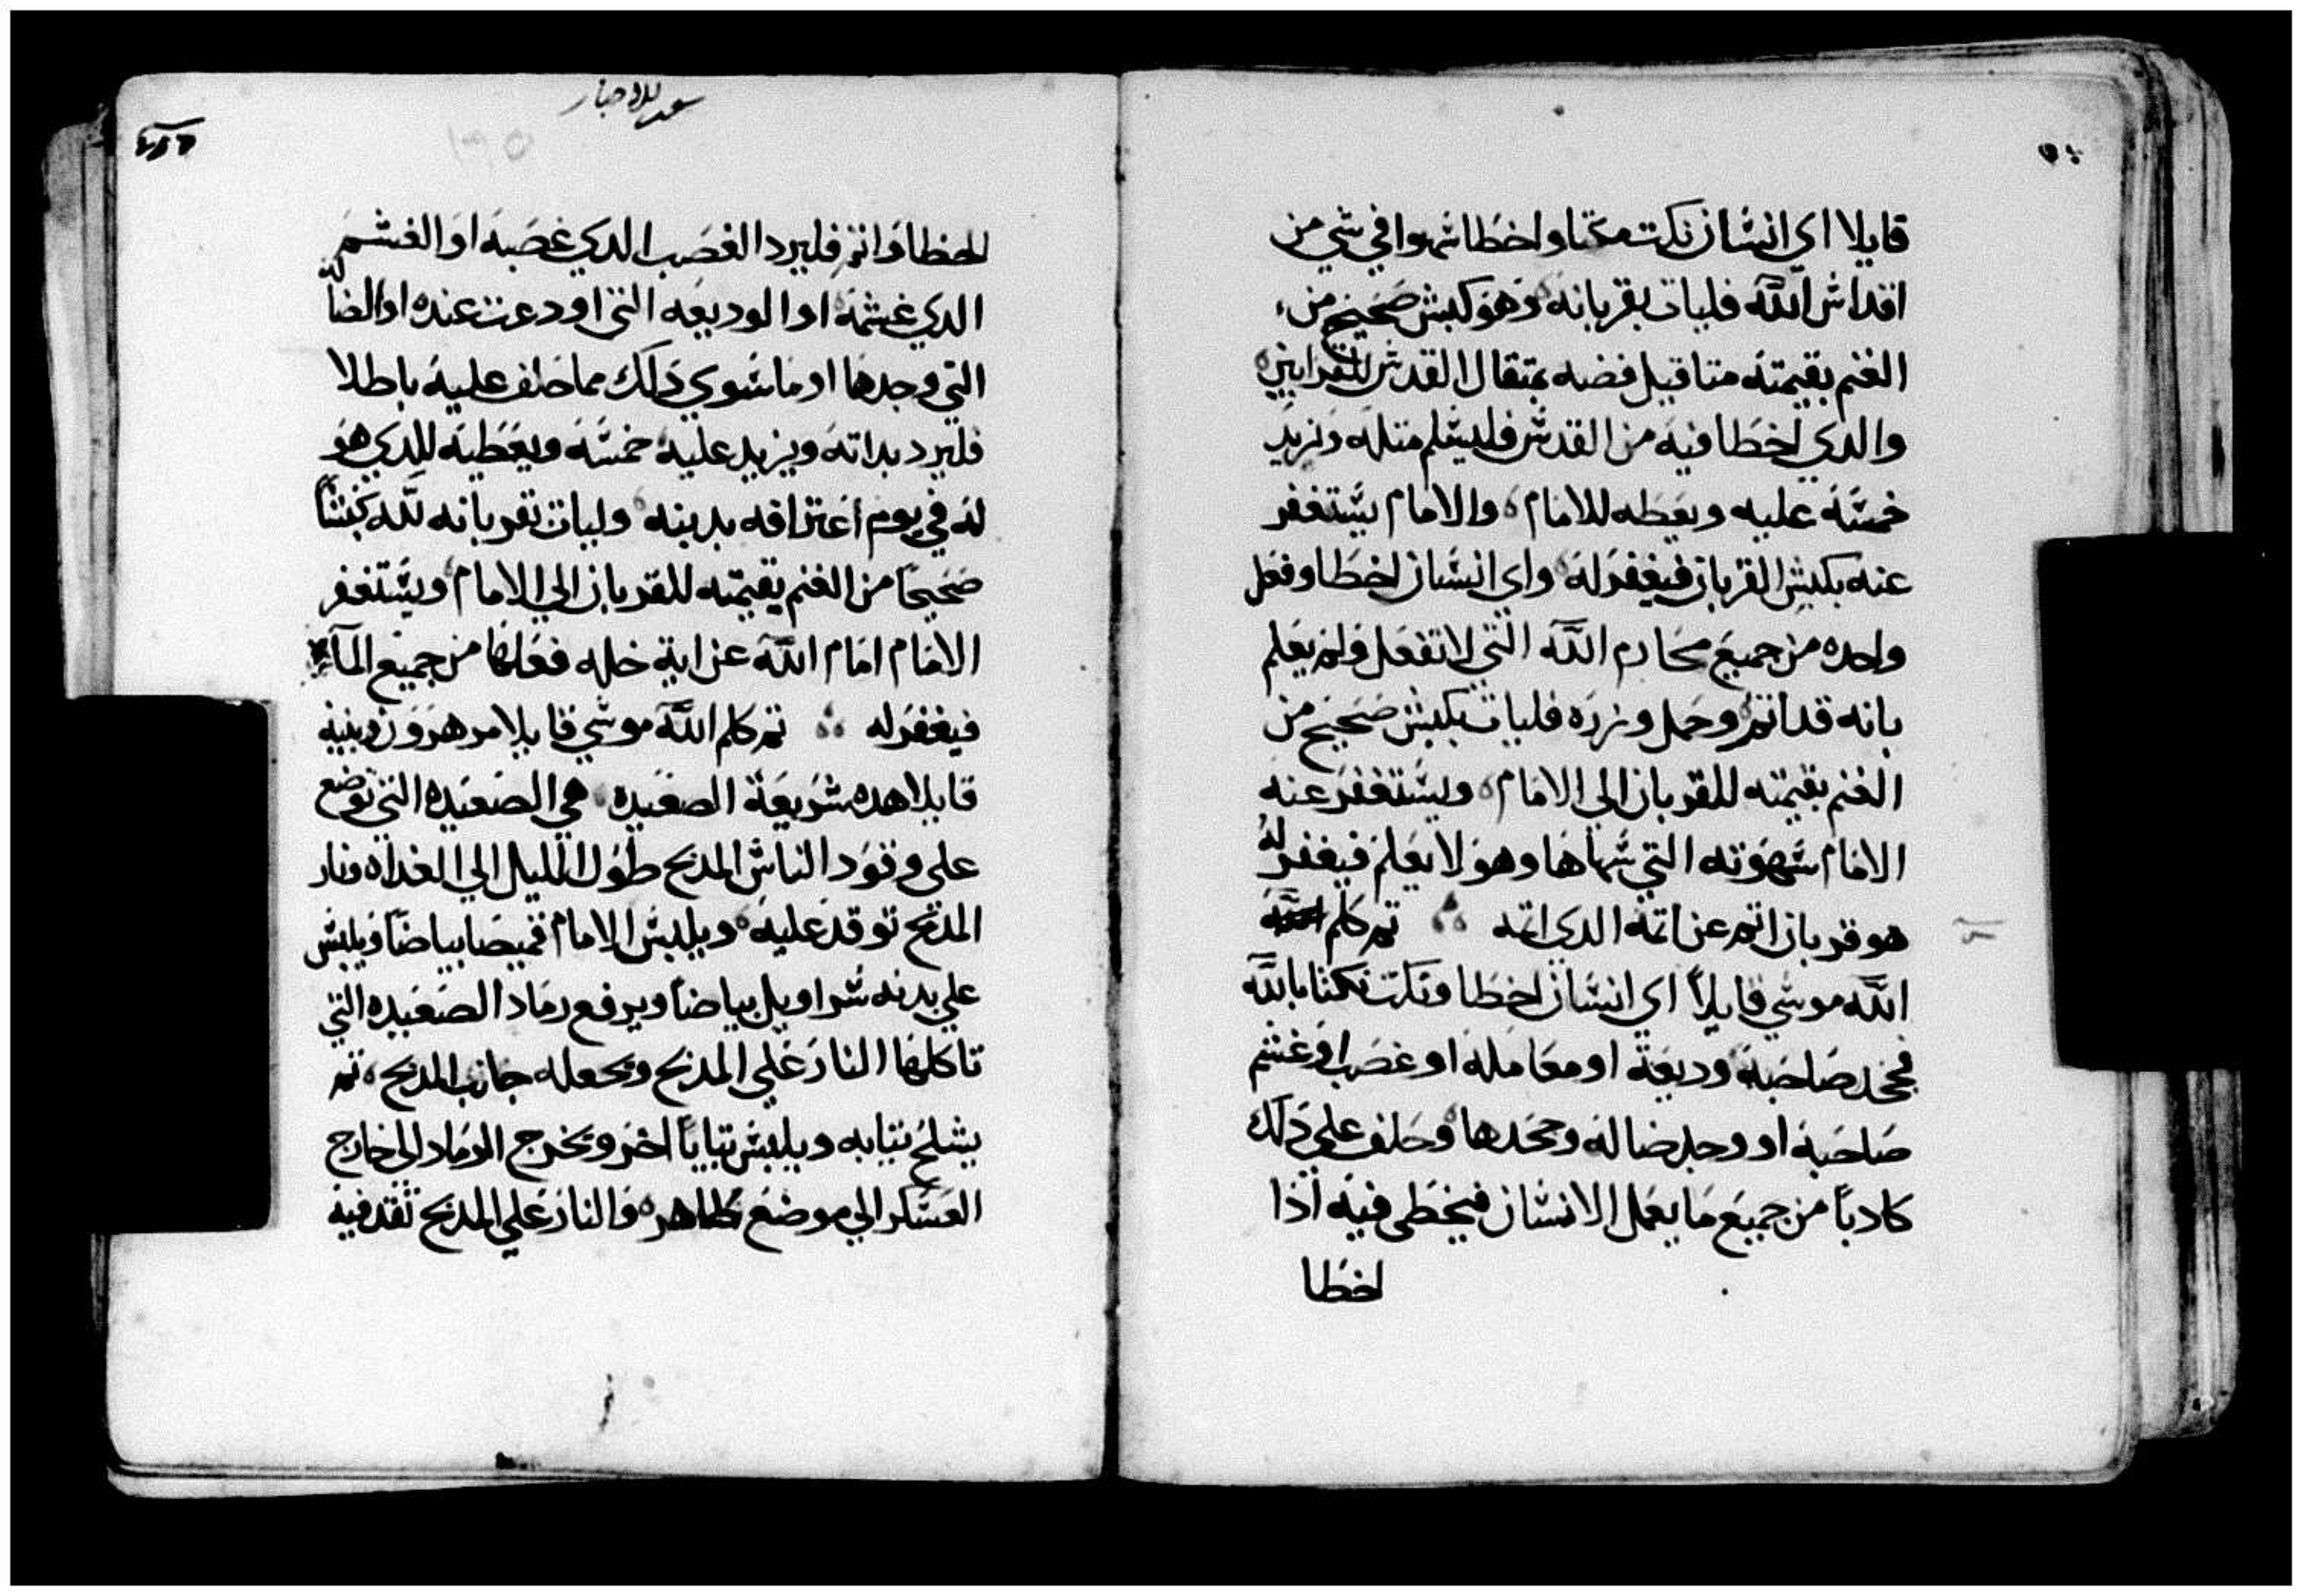 قايلا اي انسان نكت مكتا واخطا سهوا في شي من
اقداس الله فليات بقربانه وهو كبش صحيح من
الغنم بقيمته متاقيل فضه بمتقال القدس للقرابين
والدي اخطا فيه من القدس فليسلم متله ونزيد
خمسه عليه ويعطه للامام والامام يستغفر
عنه بكبش القربان فيغفر له واي انسان اخطا وفعل
واحده من جميع محارم الله التي لا تفعل ولم يعلم
بانه قد اتم وحمل وزره فليات بكبش صحيح من
الغنم بقيمته للقربان الي الامام ويستغفر عنه
الامام سهوته التي سهاها وهو لا يعلم فيغفر له
هو قربان اتم عن اتمه الدي اتمه تم كلم
الله موسي قايلاً اي انسان اخطا ونكت نكتا بالله
فجحد صاحبه وديعة او معامله او غصب او غشم
صاحبه او وجد ضاله وجحدها وحلف علي دلك
كادباً من جميع ما يعمل الانسان فيخطي فيه اذا
اخطا
سفر الاحبار
اخطا واتم فليرد الغصب الدي غصبه او الغشم
الدي غشمه او الوديعه التي اودعت عنده او الضاله
التي وجدها او ما سوي دلك مما حلف عليه باطلا
فليرد بداته ويزيد عليه خمسه ويعطيه للدي هو
له في يوم اعترافه بدينه وليات بقربانه لله كبشاً
صحيحا من الغنم بقيمته للقربان الي الامام ويستغفر
الامام امام الله عن اية خله فعلها من جميع المآتم
فيغفر له تم كلم الله موسي قايلا مر هرون وبنيه
قايلا هده شريعة الصعيده هي الصعيده التي توضع
علي وقود الناس المدبح طول الليل الي الغداه ونار
المدبح توقد عليه ويلبس الامام قميصا بياضاً ويلبس
علي بدنه سراويل بياضاً ويرفع رماد الصعيده التي
تاكلها النار علي المدبح ويجعله جانب المدبح تم
يشلح تيابه ويلبس تياباً اخر ويخرج الرماد الي خارج
العسكر الي موضع طاهر والنار علي المدبح تقد فيه